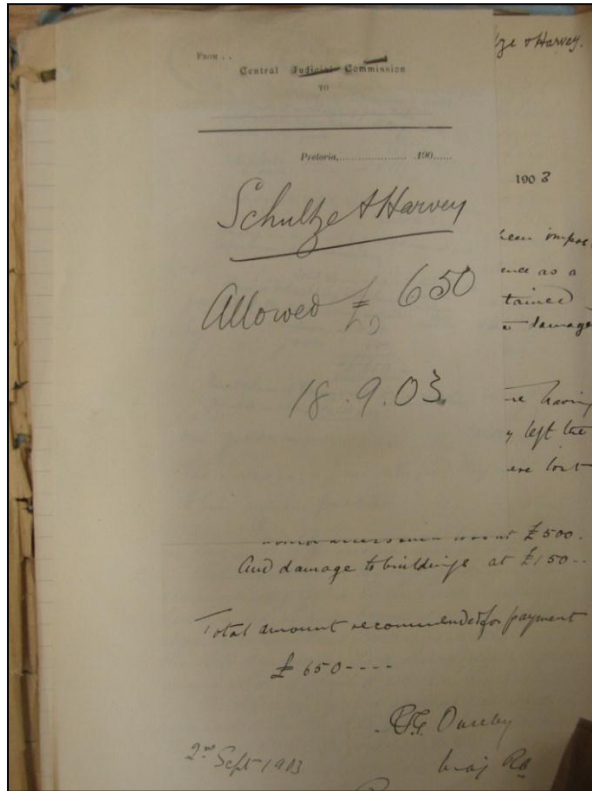 From . .
Central Judicial Commission
TO
Pretoria, 190
Schultze & Harvey
Allowed £ 650
18.9.03.
& Harvey.
1903
been
ence as a
tained
damage
having
left the
ere lost
at £500.
And damage to buildings at £150--
Total amount recommended for payment
£ 650----
2nd Sept 1903
Maj RA